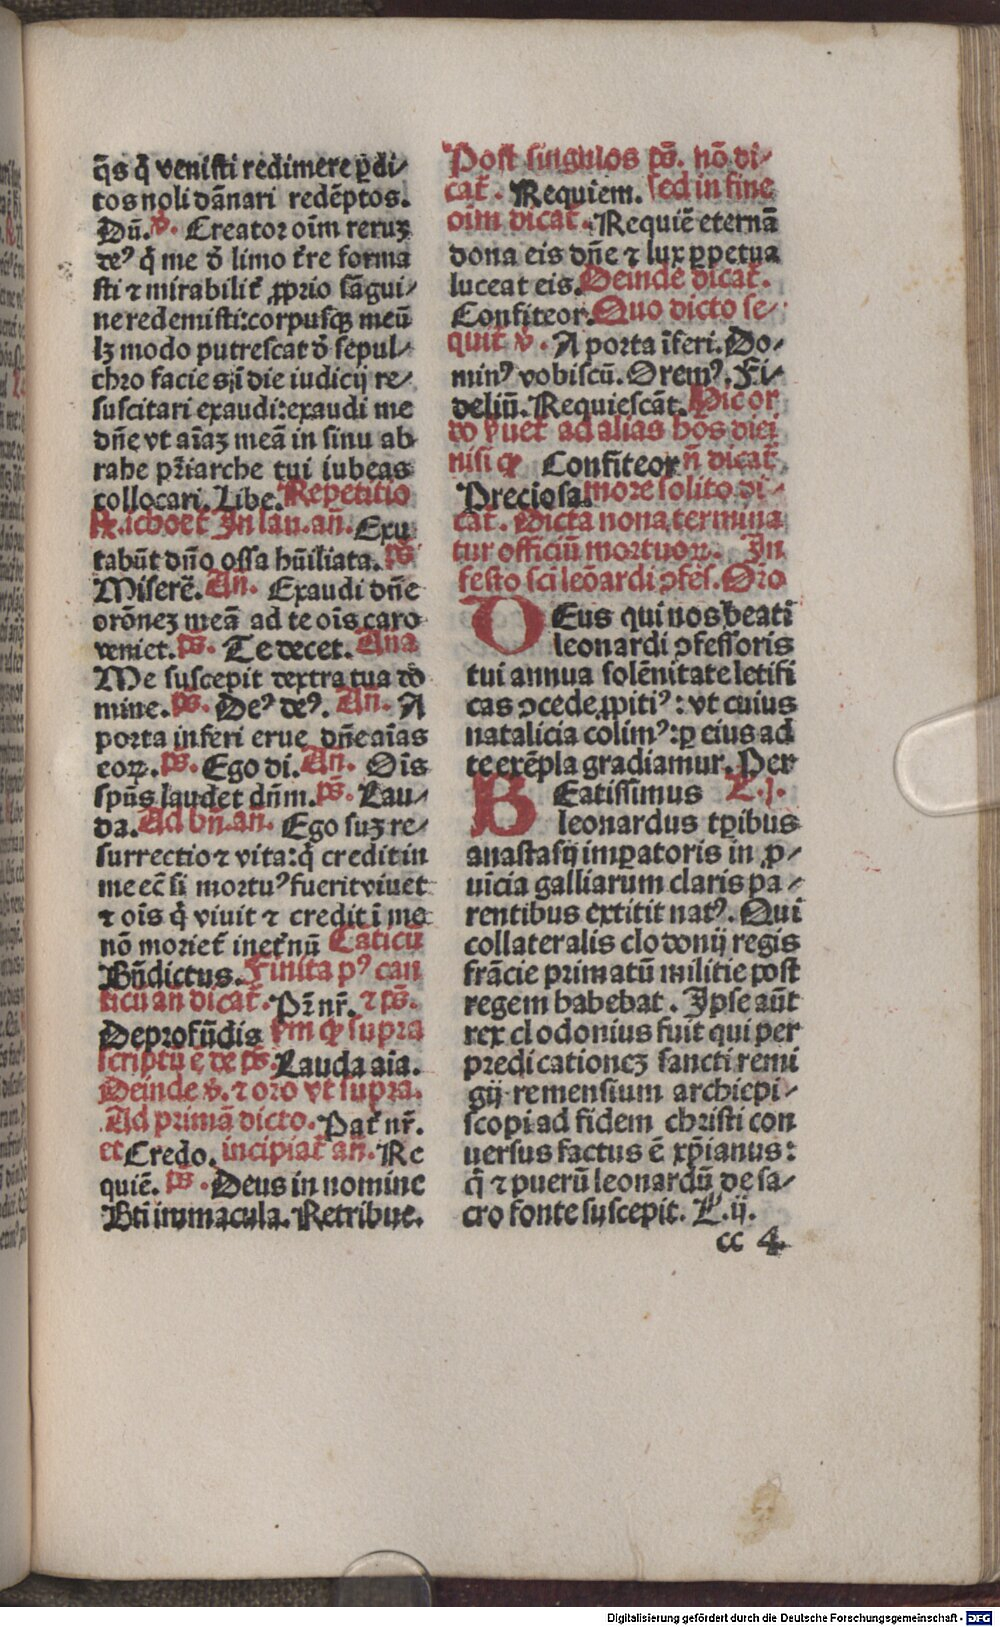 q̄s q̇ veniſti redimere ꝑdi⸗
tos noli dānari redēptos.
Dū. v̄. Creator oīm reruꝫ
deꝰ q̇ me ō limo t̄re forma
ſti ⁊ mirabilit̄ ꝓprio ſāgui⸗
ne redemiſti:corpuſqꝫ meū
lꝫ modo putreſcat ō ſepul⸗
chro facies:ī die iudicij re⸗
ſuſcitari exaudi:exaudi me
dn̄e vt aīaꝫ meā in ſinu ab
rahe pr̄iarche tui iubeas
collocari. Libe. Repetitio
Exu
tabūt dn̄o oſſa hūiliata. pṡ
Miſerē. An̄. Exaudi dn̄e
orōneꝫ meā ad te oīs caro
veniet. pṡ. Te decet. Ana
Me ſuſcepit dextra tua dō
mine. pṡ. Deꝰ deꝰ. An̄. A
porta inferi erue dn̄e aīas
eoꝝ. pṡ. Ego di. An̄. Oīs
ſpūs laudet dn̄m. pṡ. Lau⸗
da. Ad bn̄. an̄. Ego ſuꝫ re⸗
ſurrectio ⁊ vita:q̇ credit in
me ec̄ ſi mortuꝰ fuerit viuet
⁊ oīs q̇ viuit ⁊ credit ī me
nō moriet̄ inet̄nū Cāticū
Bn̄dictus. Finita pꝰ can
ticū an dicat̄. Pr̄ nr̄. ⁊ pṡ.
Deprofūdis ſupra
ſcriptū ē de pṡ. Lauda aīa.
Deinde v̄. ⁊ oro vt ſupra.
Ad primā dicto. Pat̄ nr̄.
et Credo. incipiat̄ an̄. Re
quiē. pṡ. Deus in nomine
Bti immacula. Retribue.
Poſt ſingulos pṡ. nō di⸗
cat̄. Requiem. ſed in fine
oīm dicat̄. Requiē eternā
dona eis dn̄e ⁊ lux ꝑpetua
luceat eis. Deinde dicat̄.
Confiteor. Quo dicto ſe⸗
quit̄ v̄. A porta īferi. Do⸗
minꝰ vobiſcū. Oremꝰ. Fi⸗
deliū. Requieſcāt. Hic or
do ẜuet̄ ad alias hōs diei
niſi ꝙ Confiteor n̄ dicat̄
Precioſa. more ſolito di⸗
cat̄. Dicta nona termina
tur officiū mortuoꝝ. In
feſto ſcī leōardi ꝯfeſ. Oro
DEus qui nos beati
leonardi ꝯfeſſoris
tui annua ſolēnitate letifi
cas ꝯcede ꝓpitiꝰ: vt cuius
natalicia colimꝰ:ꝑ eius ad
te exēpla gradiamur. Per
BEatiſſimus L. j.
leonardus tꝑibus
anaſtaſij imꝑatoris in ꝓ⸗
uīcia galliarum claris pa⸗
rentibus extitit natꝰ. Qui
collateralis clodonij regis
frācie primatū militie poſt
regem habebat. Ipſe aūt
rex clodonius fuit qui per
predicationeꝫ ſancti remi
gij remenſium archiepi⸗
ſcopi ad fidem chriſti con
uerſus factus ē xp̄ianus:
q̇ ⁊ puerū leonardū de ſa⸗
cro fonte ſuſcepit. L. ij.
cc 4
Digitalisierung gefördert durch die Deutsche Forschungsgemeinschaft - DFG